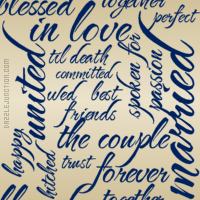 blessed
together
perfect
in love
til death
committed
wed
best
friends
spoken for
passion
united
married
the couple
happy
hitched
trust
forever
together
DAZZLEJUNCTION.COM